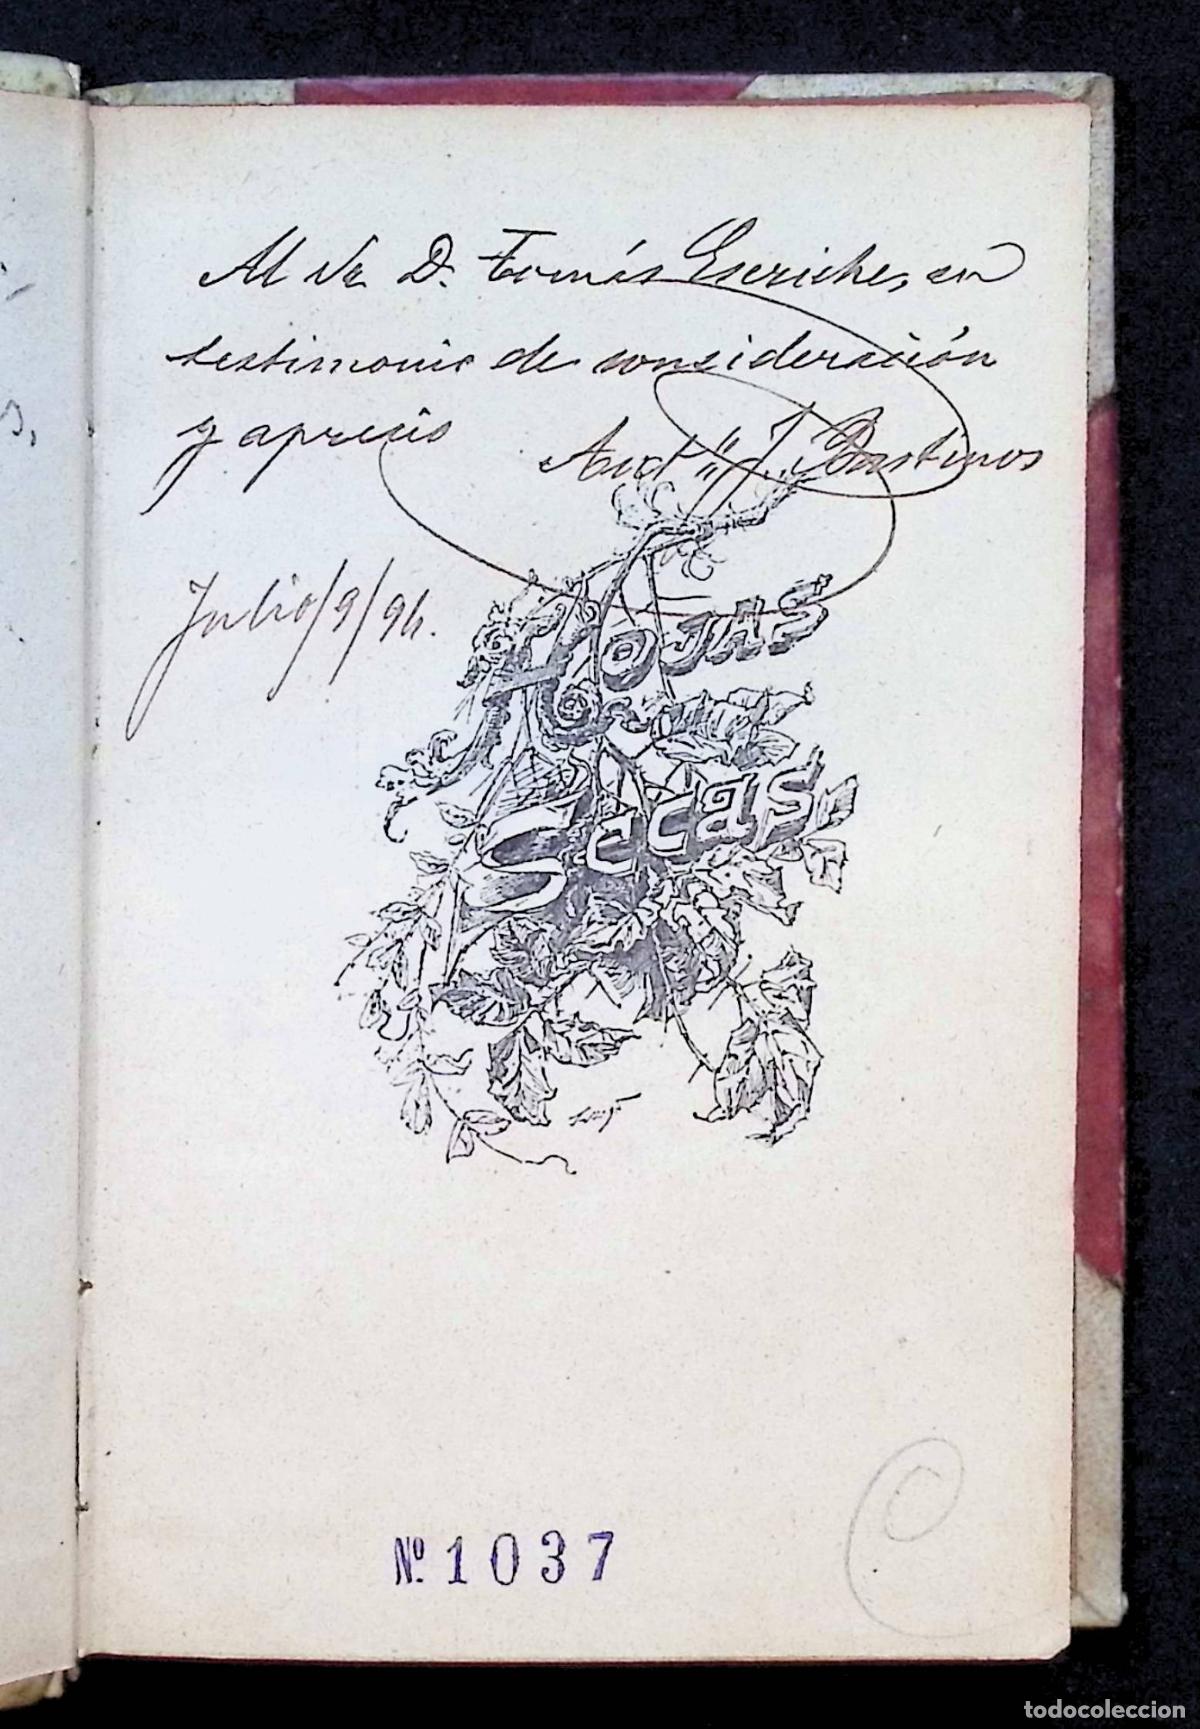 Al Sr. D. Tomás Escriche, en
testimonio de consideración
y aprecio
Ant.º J. Bastinos
Julio/9/96.
HOJAS
Secas
Nº. 1037
todocoleccion